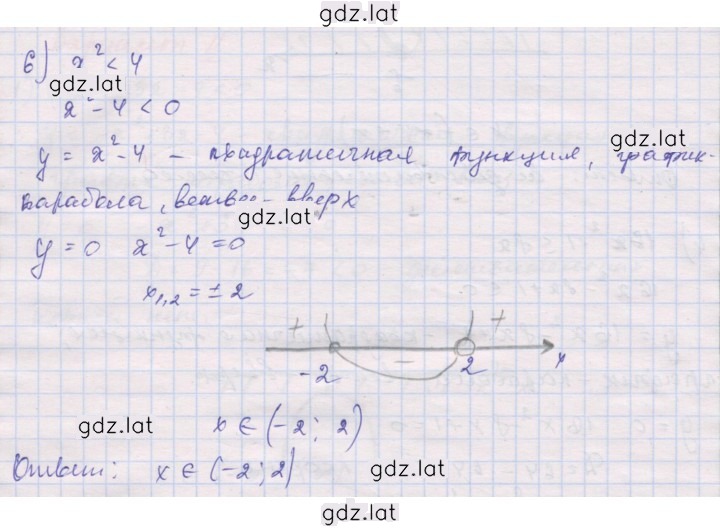 gdz.lat
б) x² < 4
gdz.lat
x² - 4 < 0
gdz.lat
y = x² - 4 – квадратичная функция, график-
парабола, ветви - вверх
gdz.lat
y = 0 x² - 4 = 0
x₁,₂ = ± 2
+ – +
-2 2 x
gdz.lat
x ∈ (-2; 2)
Ответ: x ∈ (-2; 2)
gdz.lat
gdz.lat